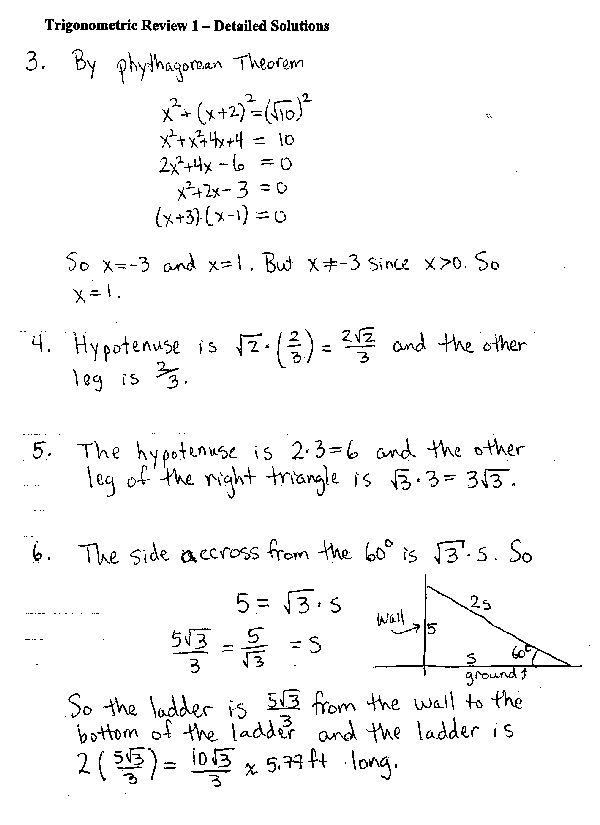 Trigonometric Review 1 – Detailed Solutions
3. By phythagorean Theorem
x²+(x+2)²=(√10)²
x²+x²+4x+4 = 10
2x²+4x-6 = 0
x²+2x-3 = 0
(x+3)(x-1) = 0
So x=-3 and x=1. But x≠-3 since x>0. So
x=1.
4. Hypotenuse is √2·(2/3) = 2√2/3 and the other
leg is 2/3.
5. The hypotenuse is 2·3=6 and the other
leg of the right triangle is √3·3=3√3.
6. The side accross from the 60° is √3·s. So
5=√3·s
5√3/3 = 5/√3 = s
wall
5
2s
s
60°
ground
So the ladder is 5√3/3 from the wall to the
bottom of the ladder and the ladder is
2(5√3/3) = 10√3/3 ≈ 5.77ft long.